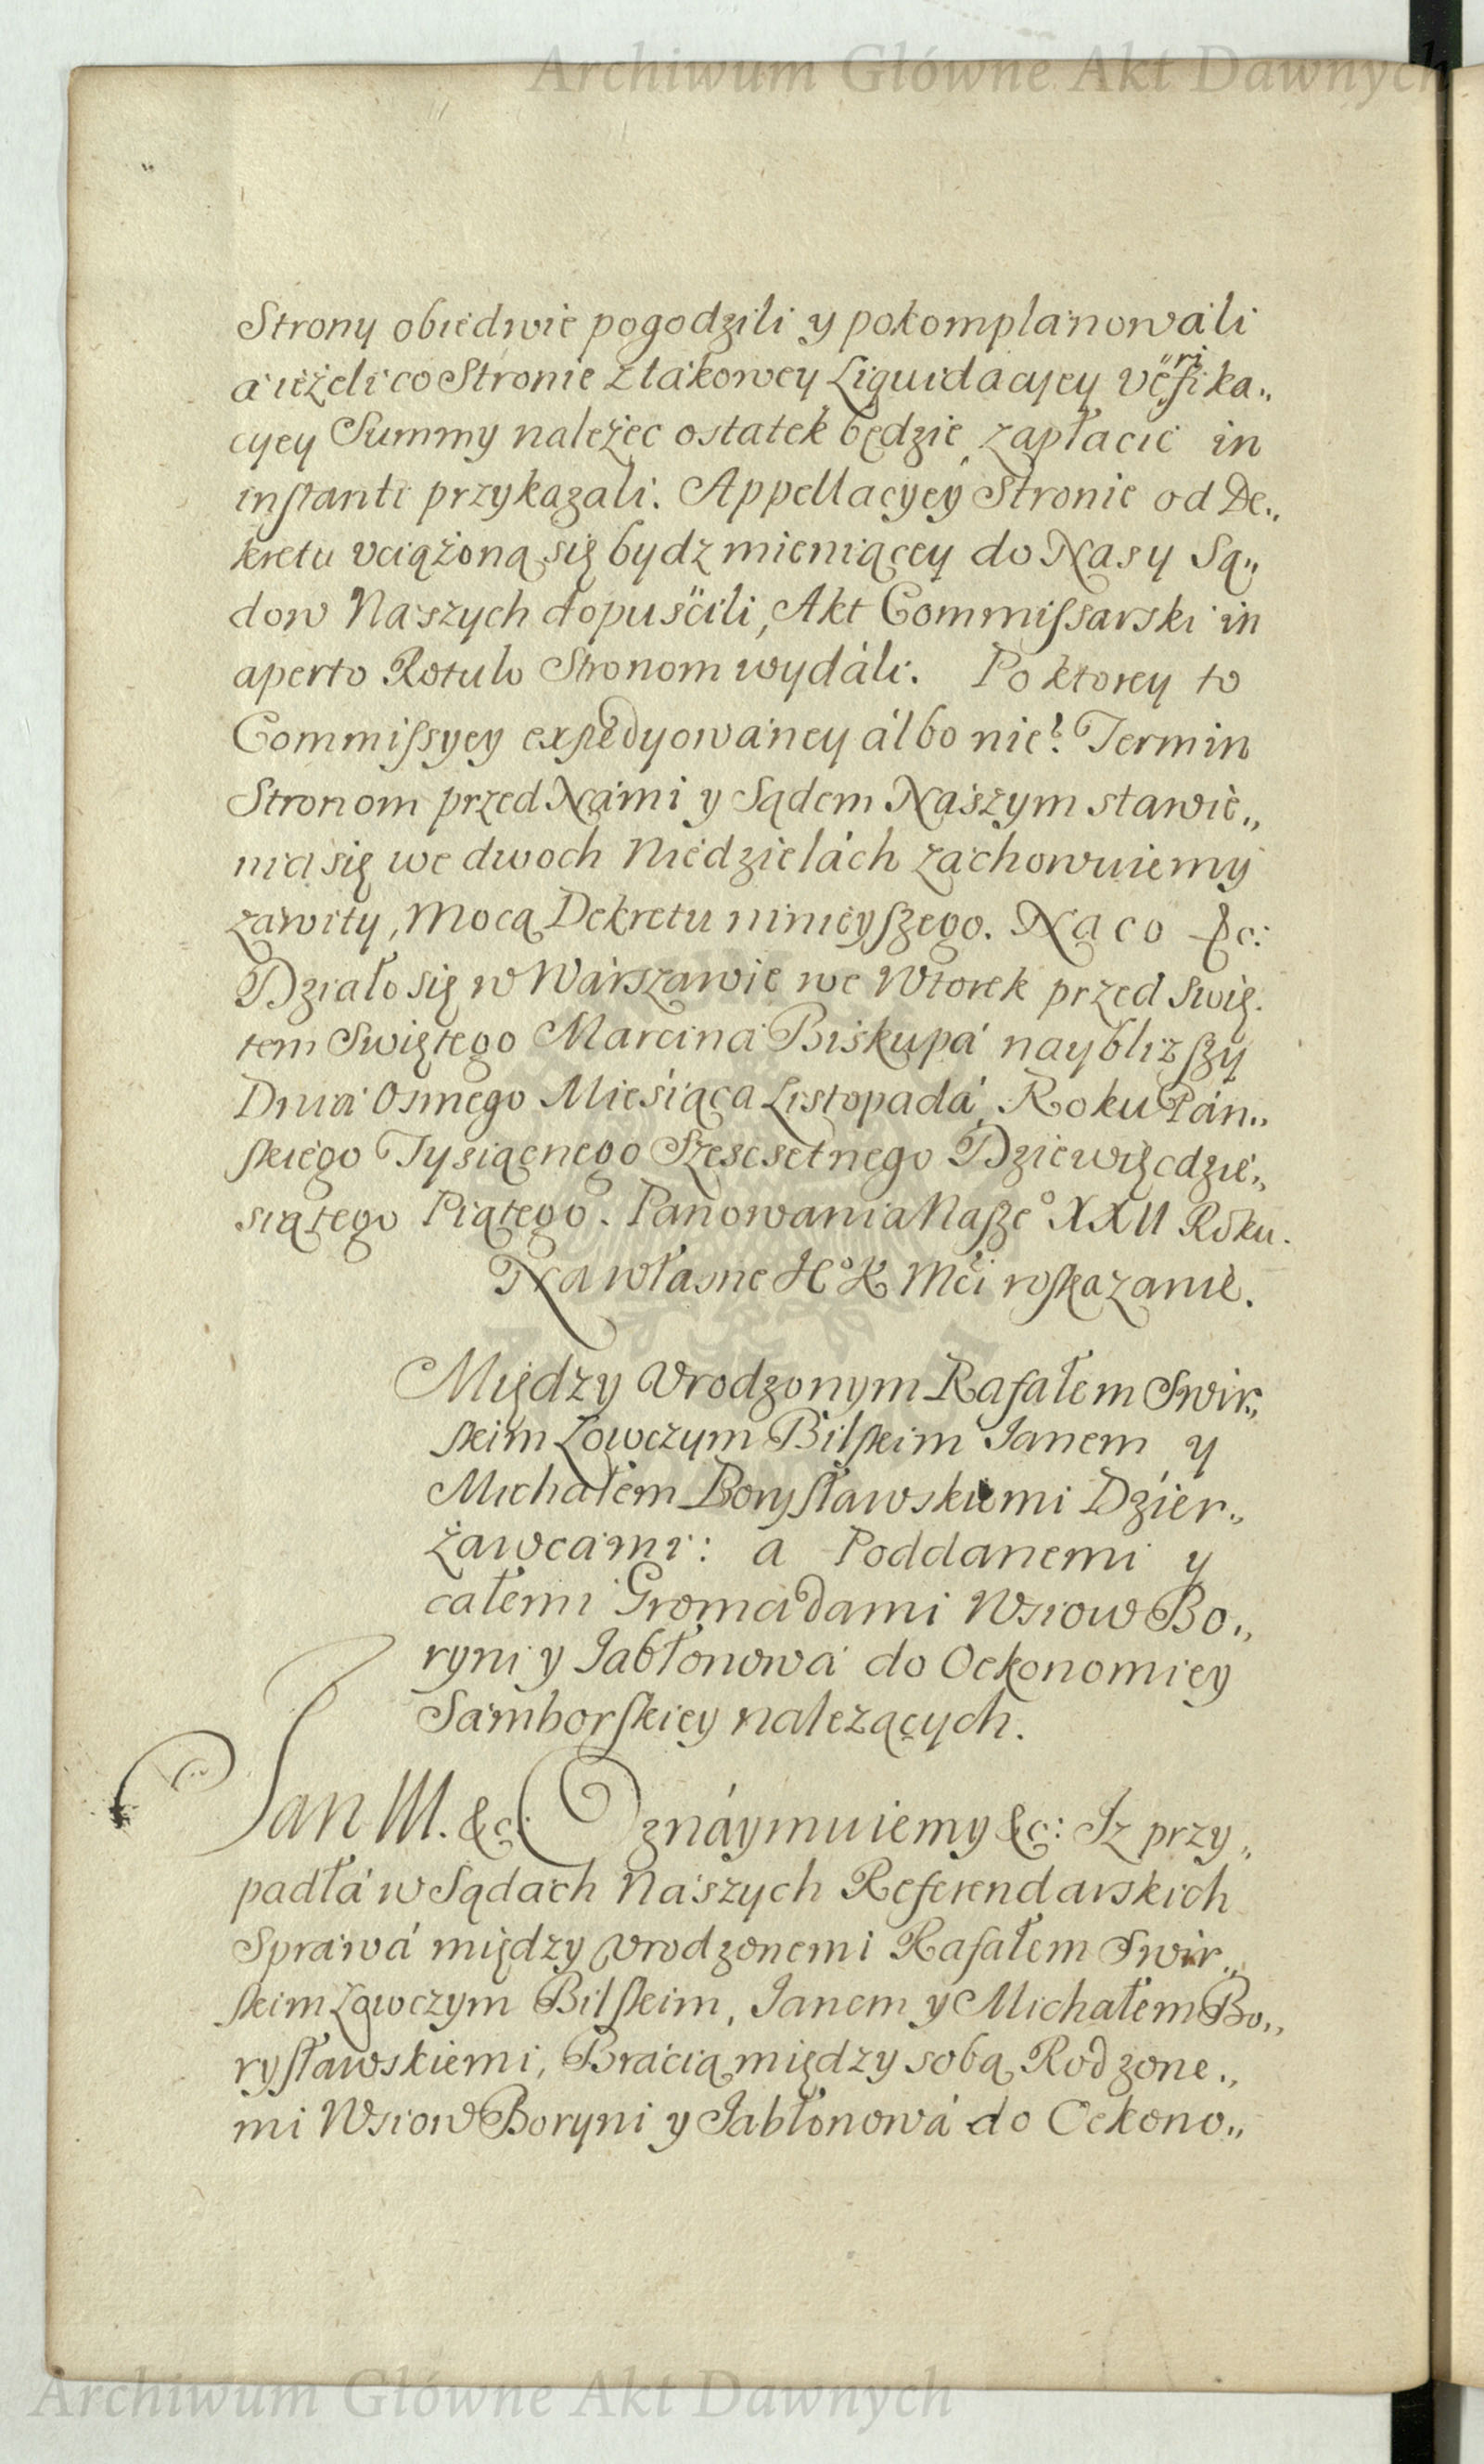 Archiwum Główne Akt Dawnych
Strony obiedwie pogodzili y pokomplanowali
a ieżeli co Stronie z takowey Liquidacyey verifika„
cyey Summy należec ostatek będzie, zapłacic in
instanti przykazali. Appellacyey Stronie od De„
kretu vciążoną się bydz mieniącey do Nas y Są„
dow Naszych dopuścili, Akt Commissarski in
aperto Rotulo Stronom wydáli. Po ktorey to
Commissyey expedyowaney álbo nie? Termin
Stronom przed Námi y Sądem Naszym stawie„
nia się we dwoch Niedzielách zachowuiemy
zawity, Mocą Dekretu ninieyszego. Na co &c:
Działo się w Warszawie we Wtorek przed Swię„
tem Swiętego Marcina Biskupá nayblizszy
Dnia Osmego Miesiąca Listopadá, Roku Pán„
skiego Tysiącnego Szescsetnego Dziewięcdzie„
siątego Piątego. Panowania Nasze° XXII Roku.
Na własne J° K Mći roskazanie.
Między Vrodzonym Rafałem Swir„
skim Łowczym Bilskim Janem y
Michałem Borysławskiemi Dzier„
żawcami: a Poddanemi y
całemi Gromadami Wsiow Bo„
ryni y Jabłonowa do Oekonomiey
Samborskiey nalezących.
Jan III. &c: Oznáymuiemy &c: Iz przy„
padłá w Sądach Naszych Referendarskich
Sprawá między Vrodzonemi Rafałem Swir„
skim Łowczym Bilskim, Janem y Michałem Bo„
rysławskiemi, Bracią między sobą Rodzone„
mi Wsiow Boryni y Jabłonowá do Oekono„
Archiwum Główne Akt Dawnych